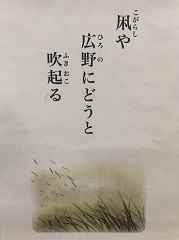 凩や
広野にどうと
吹起る
こがらし
ひろの
ふきおこ